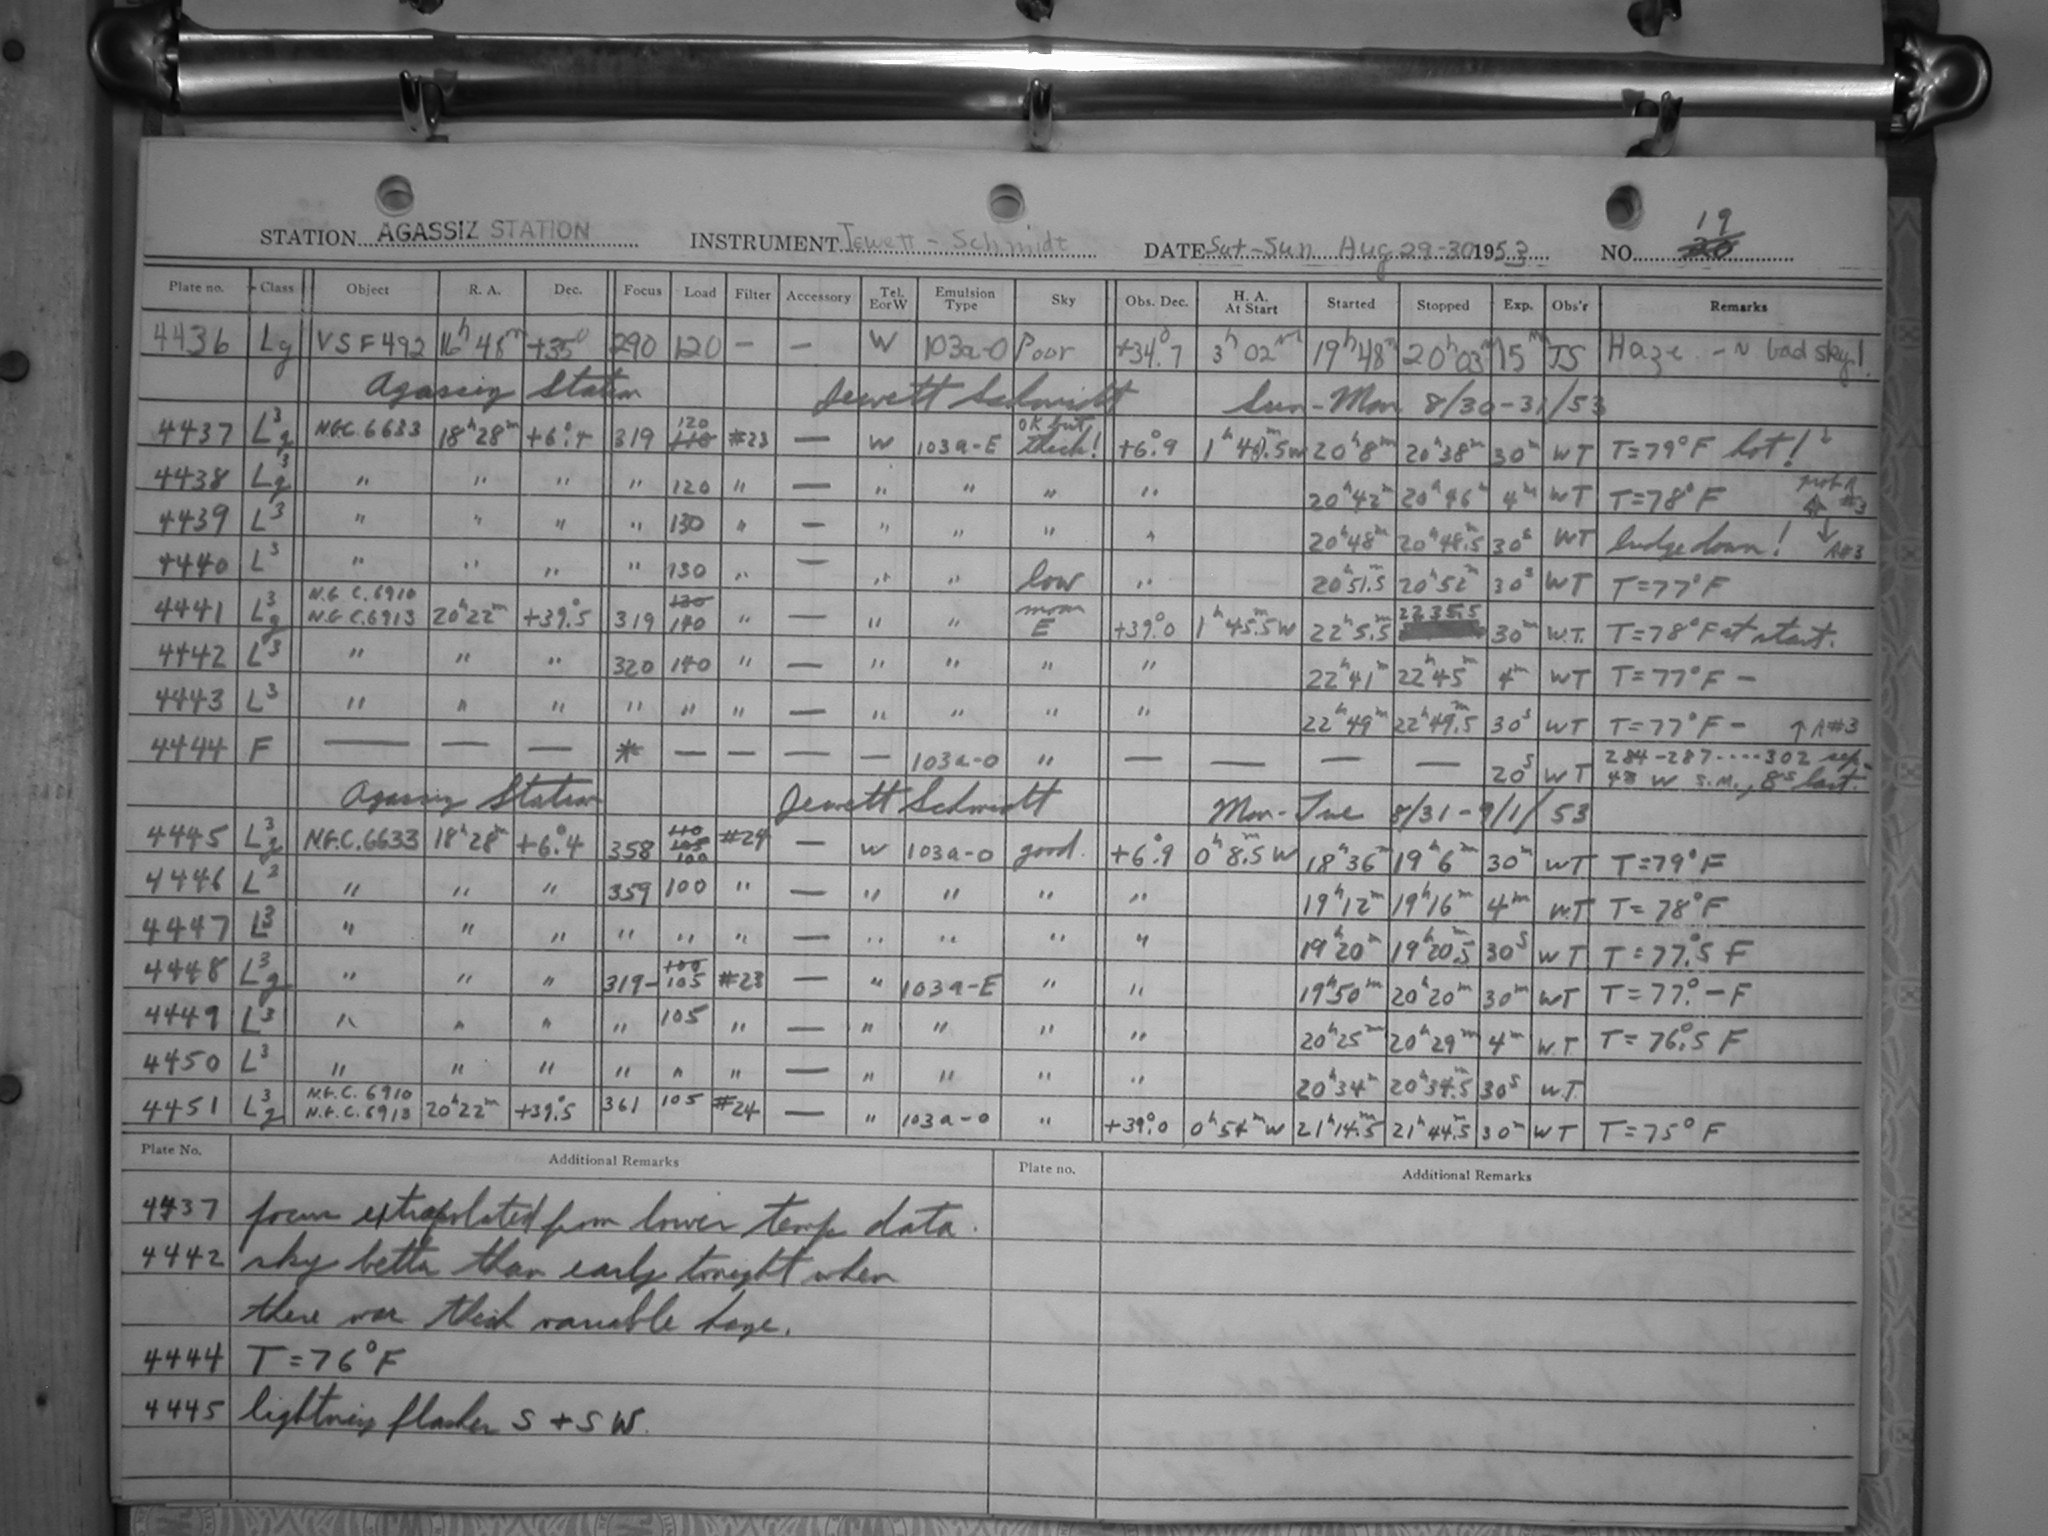 STATION AGASSIZ STATION INSTRUMENT Jewett-Schmidt DATE Sat-Sun Aug 29-30 1953 NO. 19 20
Plate no. Class Object R. A. Dec. Focus Load Filter Accessory Tel. E or W Emulsion Type Sky Obs. Dec. H. A. At Start Started Stopped Exp. Obs'r Remarks
4436 Lg VSF492 16h 48m +35° 290 120 - - W 103a-O Poor +34°.7 3h 02m 19h48m 20h03m 15m JS Haze - bad sky!
Agassiz Station Jewett Schmidt Sun-Mon 8/30-31/53
4437 L3g NGC.6633 18h28m +6°.4 319 120 110 #23 — W 103a-E OK but thick! +6°.9 1h40m.5W 20h8m 20h38m 30m WT T=79°F hot!
4438 L3g " " " " 120 " — " " " " 20h42m 20h46m 4m WT T=78°F
4439 L3 " " " " 130 " — " " " " 20h48m 20h48m.5 30s WT budge down! ↓ A#3
4440 L3 " " " " 130 " — " " low " 20h51.5 20h52m 30s WT T=77°F
4441 L3g N.G.C.6910 N.G.C.6913 20h22m +39°.5 319 130 140 " — " " moon E +39°.0 1h45m.5W 22h5m.5 22 35.5 30m W.T. T=78°F at start.
4442 L3 " " " 320 140 " — " " " " 22h41m 22h45m 4m WT T=77°F -
4443 L3 " " " " " " — " " " " 22h49m 22h49m.5 30s WT T=77°F - ↑A#3
4444 F — — — * — — — — 103a-O " — — — — 20s WT 284-287....302 sep. 48 W S.M., 8s last.
Agassiz Station Jewett Schmidt Mon-Tue 8/31-9/1/53
4445 L3g N.G.C.6633 18h28m +6°.4 358 110 105 100 #24 — W 103a-O good. +6°.9 0h8m.5W 18h36m 19h6m 30m WT T=79°F
4446 L3 " " " 359 100 " — " " " " 19h12m 19h16m 4m W.T T=78°F
4447 L3 " " " " " " — " " " " 19h20m 19h20m.5 30s WT T=77°.5 F
4448 L3g " " " 319- 100 105 #23 — " 103a-E " " 19h50m 20h20m 30m WT T=77°.-F
4449 L3 " " " " 105 " — " " " " 20h25m 20h29m 4m W.T. T=76°.5 F
4450 L3 " " " " " " — " " " " 20h34m 20h34m.5 30s W.T.
4451 L3g N.G.C. 6910 N.G.C. 6913 20h22m +39°.5 361 105 #24 — " 103a-O " +39°.0 0h54mW 21h14m.5 21h44m.5 30m WT T=75°F
Plate No. Additional Remarks Plate no. Additional Remarks
4437 focus extrapolated from lower temp data.
4442 sky better than early tonight when
there was thick variable haze.
4444 T=76°F
4445 lightning flashes S + SW.